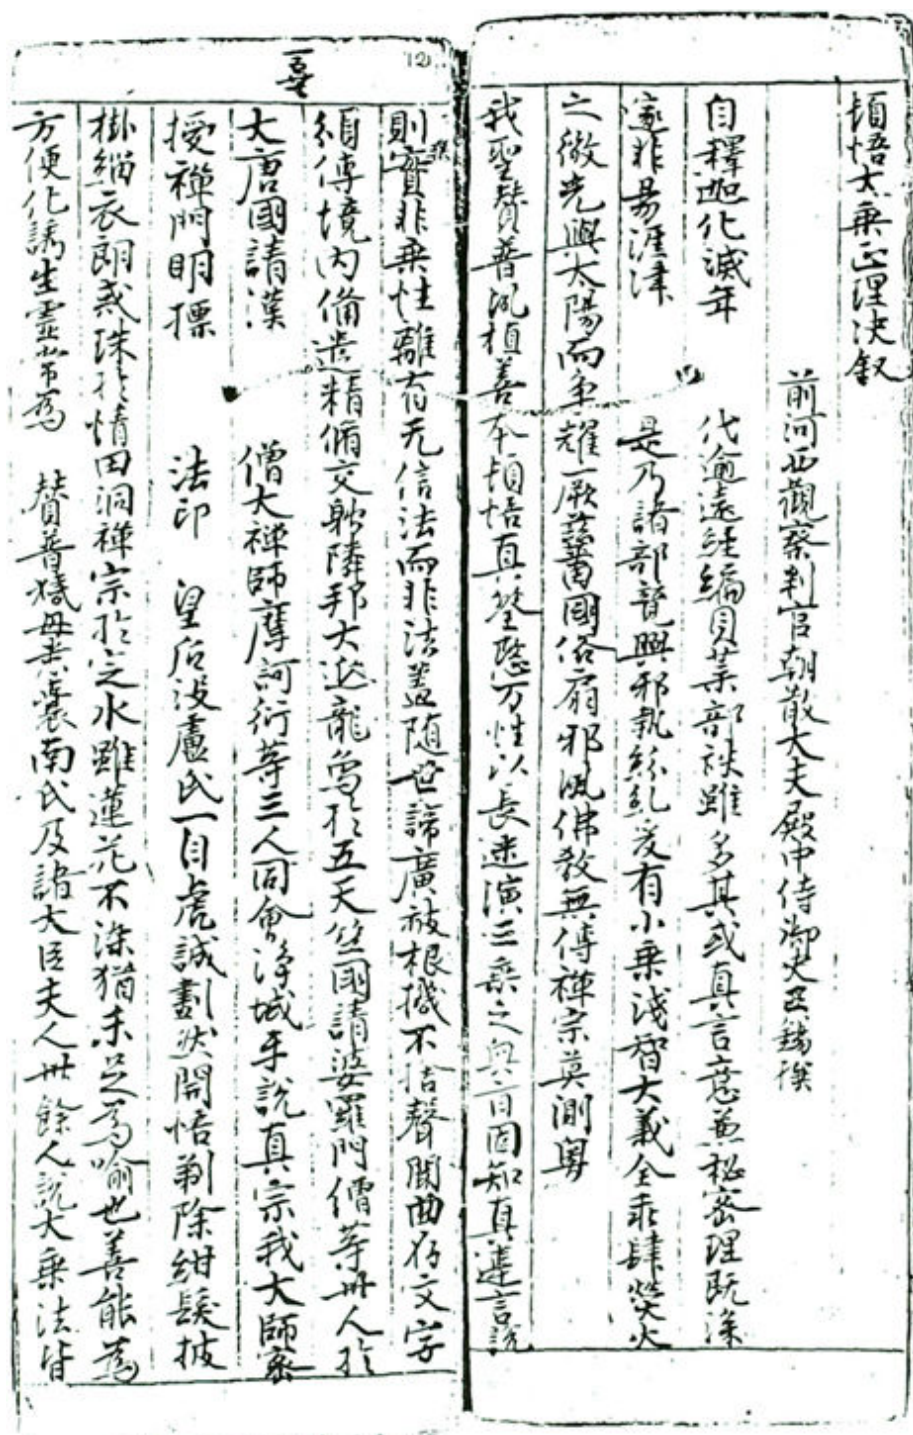 頓悟大乗正理決叙
前河西觀察判官朝散大夫殿中侍御史王錫撰
自釋迦化滅年代逾遠經編貝葉部袟雖多其或真言意兼秘密理既深
邃非易涯津是乃諸部競興邪執紛乱爰有小乗淺智大義全乖肆熒火
之微光與太陽而争耀厥兹蕃國俗扇邪風佛教無傳禪宗莫測粵
我聖賛普夙植善本頓悟真筌愍万性以長迷演三乗之奥旨固知真違言説
則實非乗性離有无信法而非法盖随世諦廣被根機不捨聲聞曲存文字
頒傳境内備遣精脩交聘隣邦大延龍象於五天竺國請婆羅門僧等卅人於
大唐國請漢僧大禪師摩訶衍等三人同會淨城乎說真宗我大師密
授禪門明摽法印皇后没盧氏一自虔誠劃然開悟剃除紺髮披
掛緇衣朗戒珠於情田洞禪宗於定水雖蓮花不染猶未足為喻也善能為
方便化誘生靈常為賛普姨母悉囊南氏及諸大臣夫人卅餘人説大乗法皆